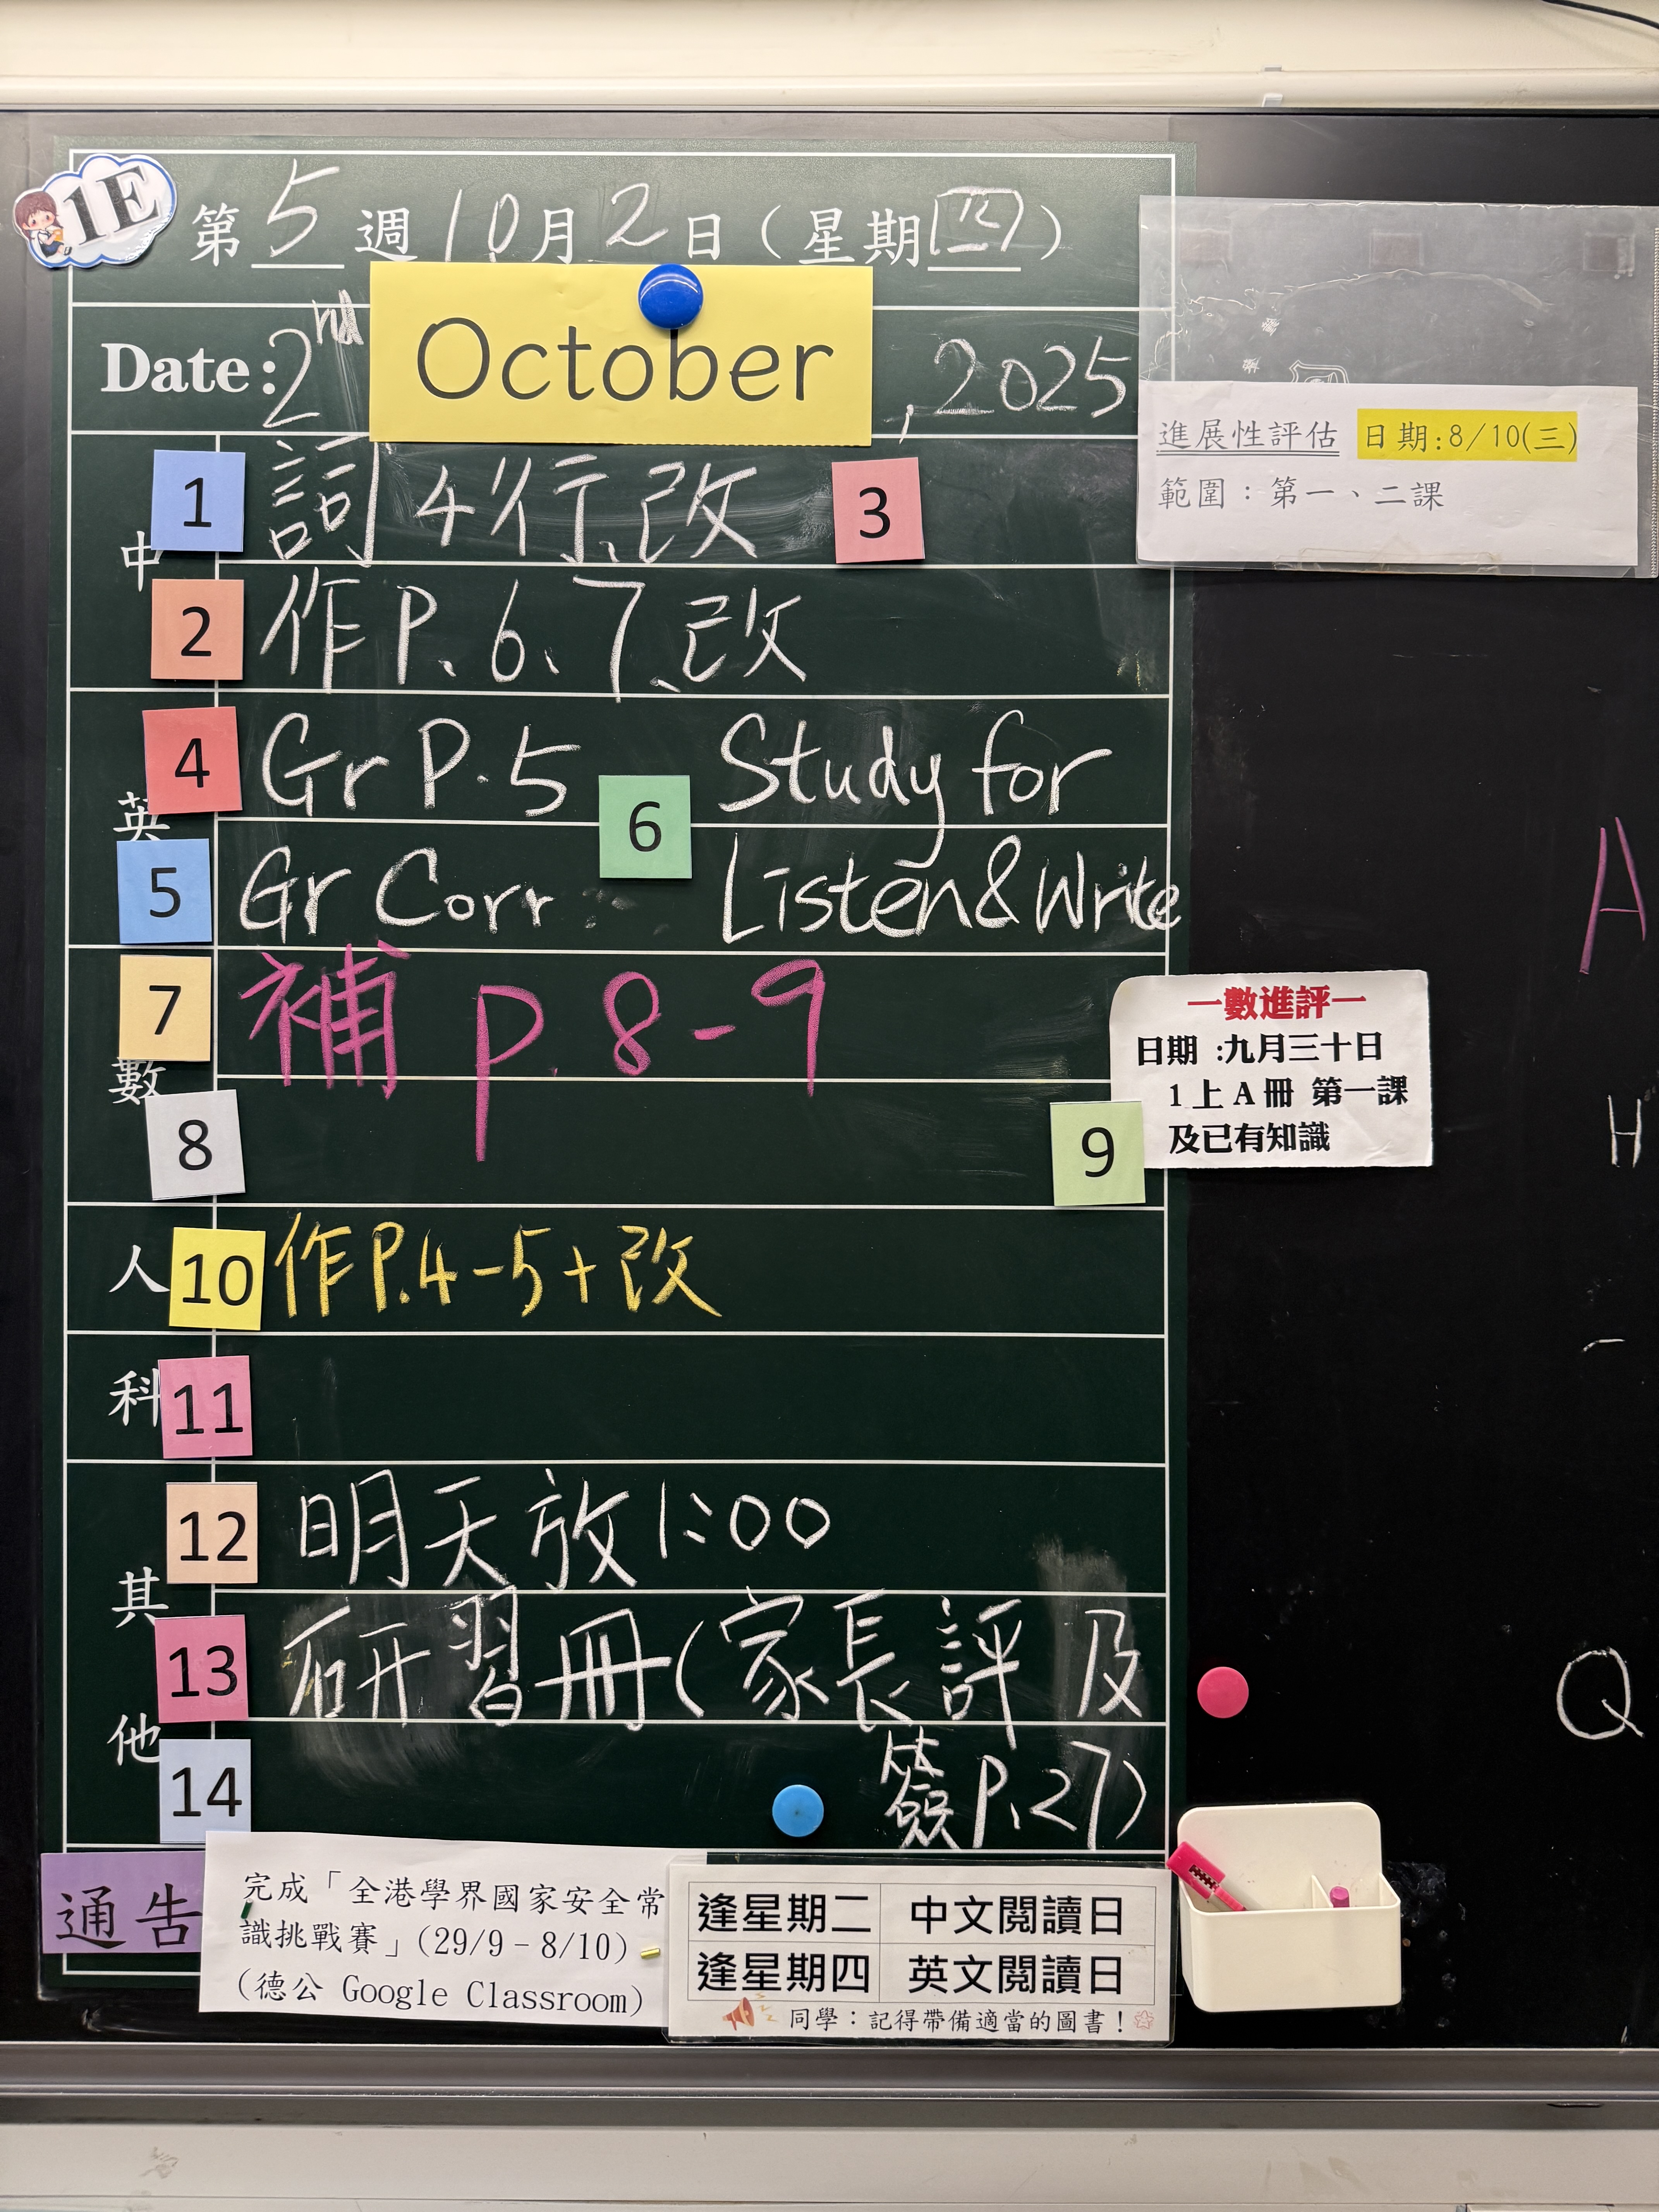 1E
第 5 週 10 月 2 日（星期四）
Date: 2nd October, 2025
進展性評估 日期:8/10(三)
範圍：第一、二課
中
1 詞4行、改 3
2 作P.6、7、改
英
4 Gr P.5 6 Study for
5 Gr Corr Listen&Write
數
7 補 p.8-9
8
9
一數進評一
日期 :九月三十日
1上A冊 第一課
及已有知識
人 10 作P.4-5+改
科 11
其他
12 明天放1:00
13 研習冊(家長評及
14 簽P.27)
通告
完成「全港學界國家安全常
識挑戰賽」(29/9－8/10)
(德公 Google Classroom)
逢星期二 中文閱讀日
逢星期四 英文閱讀日
同學：記得帶備適當的圖書！
A
H
Q